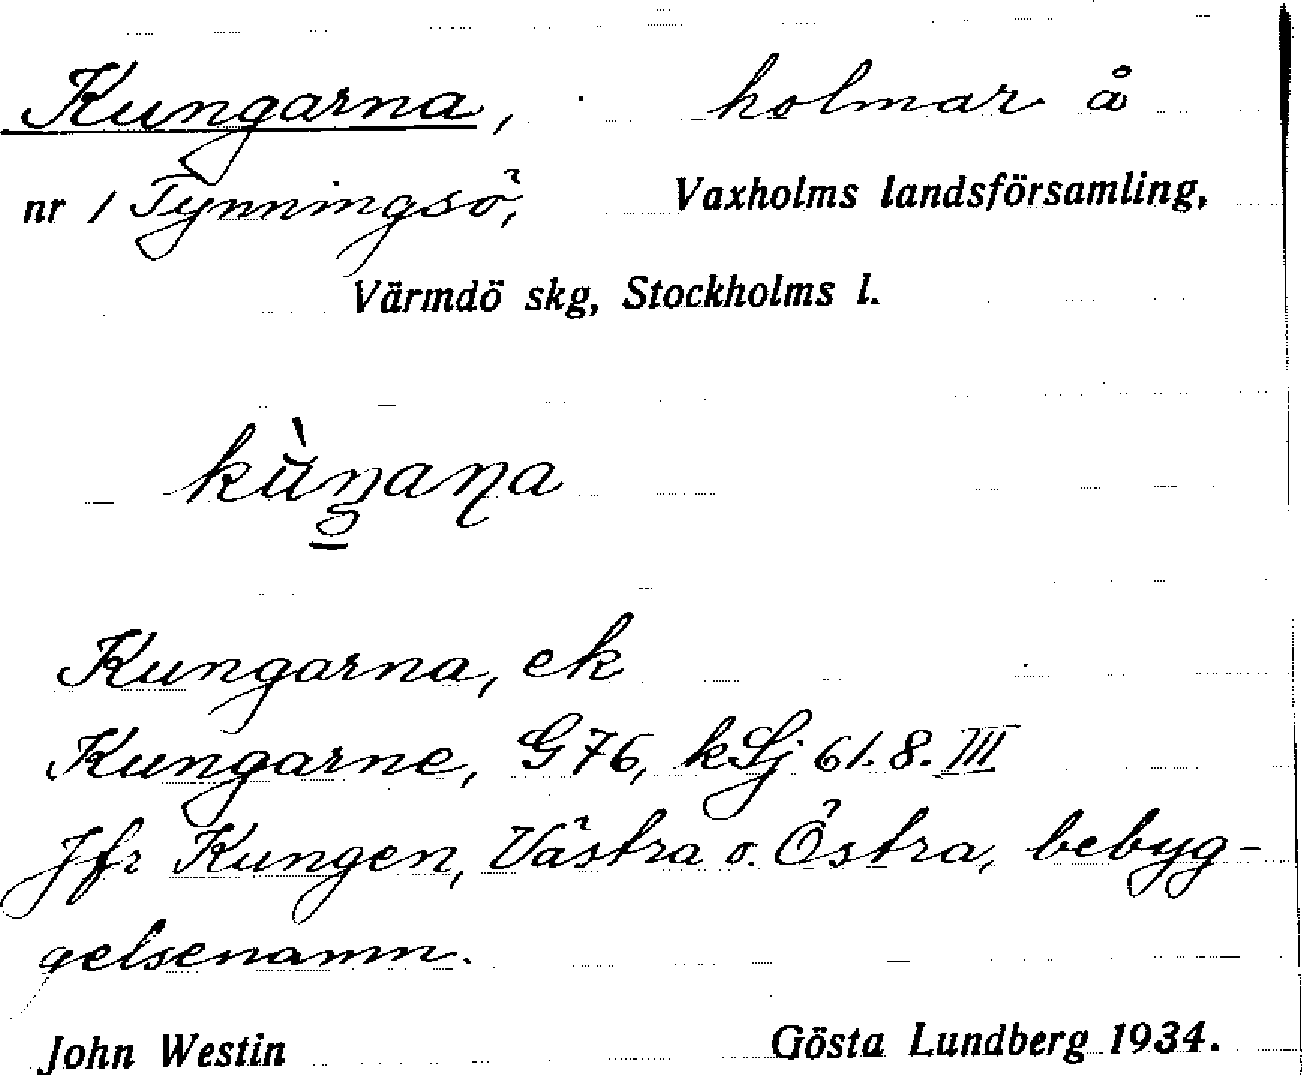 Kungarna, holmar å
nr 1 Tynningsö, Vaxholms landsförsamling,
Värmdö skg, Stockholms l.
Kungarna, ek
Kungarne, G76, kSj 61.8.III
Jfr Kungen, Västra o. Östra, bebyg-
gelsenamn.
John Westin Gösta Lundberg 1934.